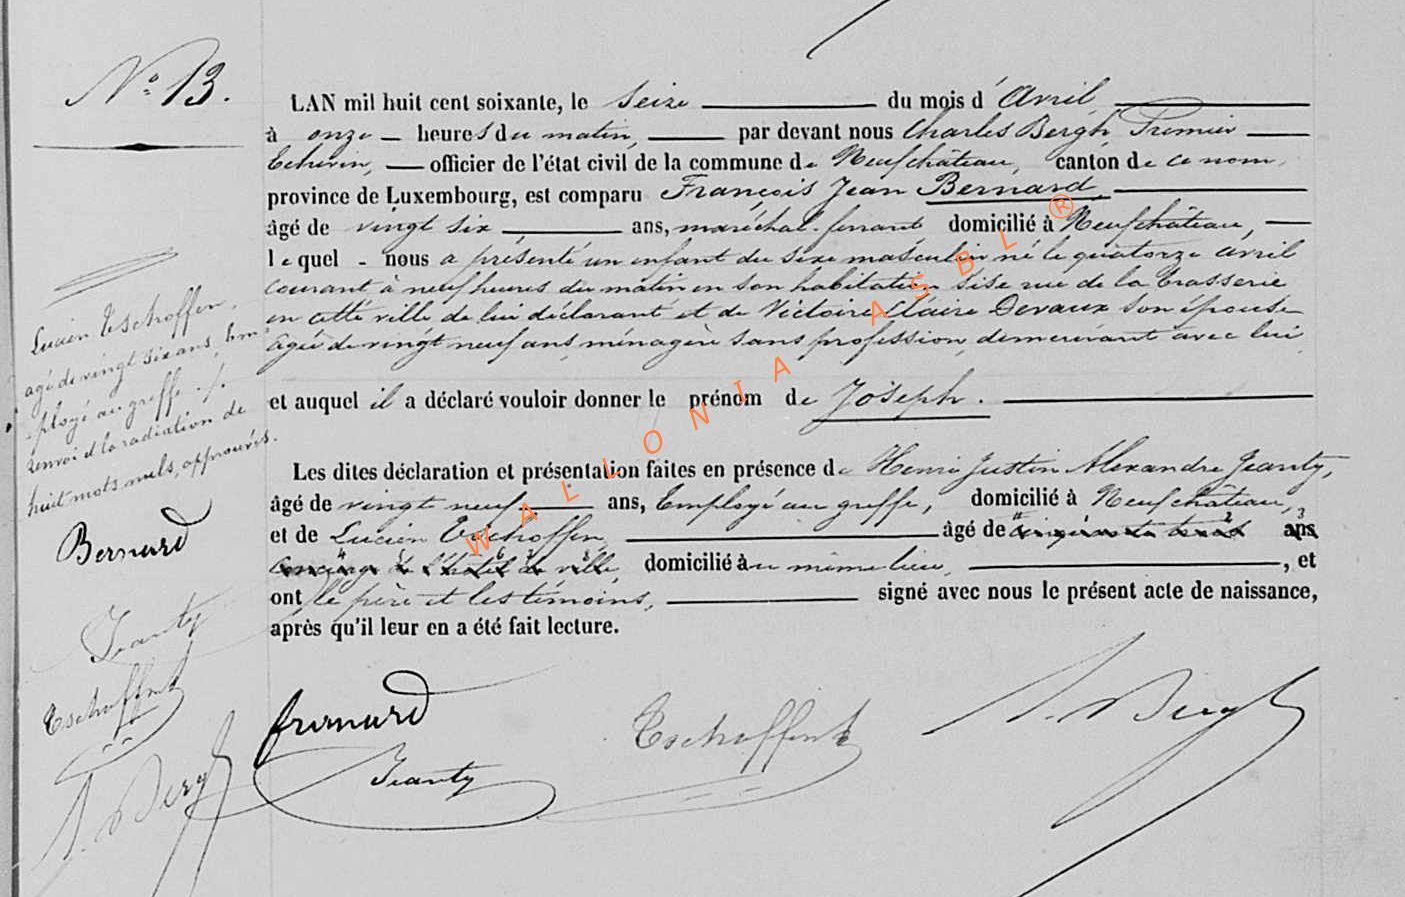 N° 13.
LAN mil huit cent soixante, le Seize du mois d'Avril
à onze heures du matin, par devant nous Charles Bergh, Premier
Echevin, officier de l'état civil de la commune de Neufchâteau, canton de ce nom,
province de Luxembourg, est comparu François Jean Bernard,
âgé de vingt six ans, maréchal-ferrant domicilié à Neufchâteau,
lequel nous a présenté un enfant du sexe masculin né le quatorze avril
courant à neuf heures du matin en son habitation sise rue de la brasserie
en cette ville de lui déclarant et de Victoire Claire Devaux son épouse
âgée de vingt neuf ans, ménagère sans profession, demeurant avec lui
et auquel il a déclaré vouloir donner le prénom de Joseph.
Les dites déclaration et présentation faites en présence de Henri Justin Alexandre Jeanty,
âgé de vingt neuf ans, Employé au greffe, domicilié à Neufchâteau,
et de Lucien Tschoffen, âgé de cinquante trois ans
Concierge de l'hôtel de ville, domicilié au même lieu, et
ont le père et les témoins, signé avec nous le présent acte de naissance,
après qu'il leur en a été fait lecture.
Lucien Tschoffen,
agé de vingt six ans, Em-
-ployé au greffe ./.
renvoi et la radiation de
huit mots nuls, approuvés.
Bernard
Jeanty
Tschoffen
Bergh
Bernard
Jeanty
Tschoffen
Bergh
WALLONIA ASBL ®